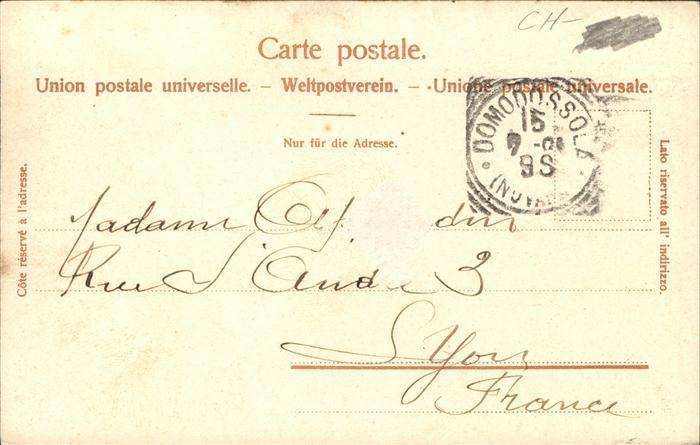 CH-
Carte postale.
Union postale universelle. – Weltpostverein. – Unione postale universale.
Nur für die Adresse.
DOMODOSSOLA
15
9S
(NOVA
Côte réservé à l'adresse.
Lato riservato all' indirizzo.
Madame Alf.
Rue St André 3
Lyon
France